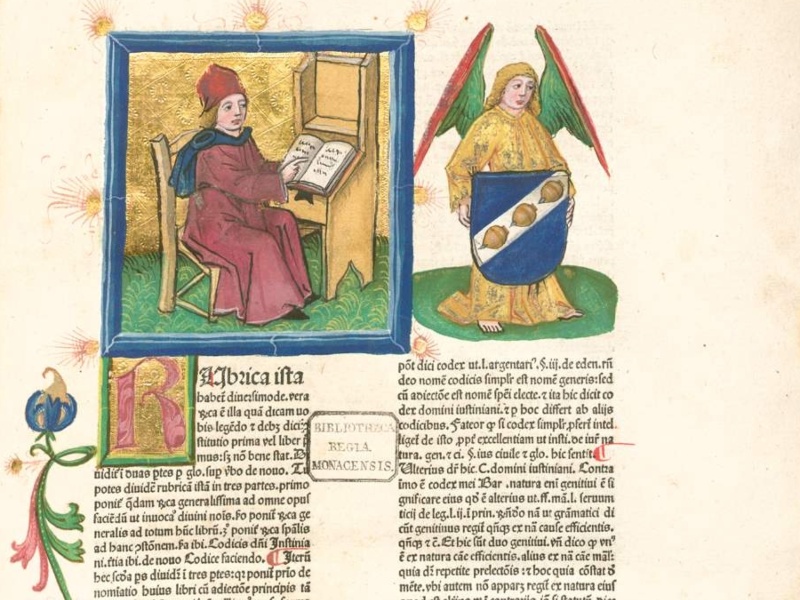 RUbrica ista
habet diuersimode. vera
⁊ca ē illa quā dicam uo
bis legēdo ⁊ debꝫ dici: ī
stitutio prima vel liber p
mus: sꝫ nō bene stat. D
uidit̄ ī duas ptes p glo. sup v̄bo de nouo. Tu
potes diuidē rubricā istā in tres partes. primo
ponit̄ qdam ⁊ca generalissima ad omne opus
faciēdū ut inuocaō diuini nois. so ponit̄ ⁊ca ge
neralis ad totum hūc librū. ꝫo ponit̄ ⁊ca spālis
ad hanc ꝯstōnem. ẜa ibi. Codicis dn̄i Justinia
ni. t̄tia ibi. de nouo Codice faciendo. Iterū
hec scd̄a ps diuidit̄ ī tres ptes: qꝛ ponit̄ prīo de
nomiatio huius libri cū adiectōe principis tā
BIBLIOTHECA
REGIA
MONACENSIS.
pōt dici codex ut. l. argentariꝰ. §. iii. de eden. rn̄
deo nomē codicis simplr̄ est nomē generis: sed
cū adiectōe est nomē spēi electe. ⁊ ita hic dicit co
dex domini iustiniani. ⁊ p hoc differt ab alijs
codicibus. Fateor ꝙ si codex simplr̄ ꝓfert̄ intel
liget̄ de isto ,ppt̄ excellentiam ut insti. de iur̄ na
tura. gen. ⁊ ci. §. ius ciuile ⁊ glo. hic sentit.
Ulterius dr̄ hic. C. domini iustiniani. Contra
imo ē codex mei Bar. natura eni genitiui ē si
gnificare eius qd ē alterius ut. ff. mā. l. seruum
ticij de leg. l. ij. ī prin. q̄ndo nā ut grāmatici di
cūt genitiuus regit̄ qn̄qꝫ ex nā cause efficientis.
qn̄qꝫ ⁊ c̄. Et hic sūt duo genitiui. vn̄ dico ꝙ vnꝰ
ē ex natura cāe efficientis. alius ex nā cāe mālꝭ:
quia dꝛ̄ repetite prelectōis: ⁊ hoc quia cōstat d
mēte. vbi autem nō apparꝫ regit̄ ex natura eius